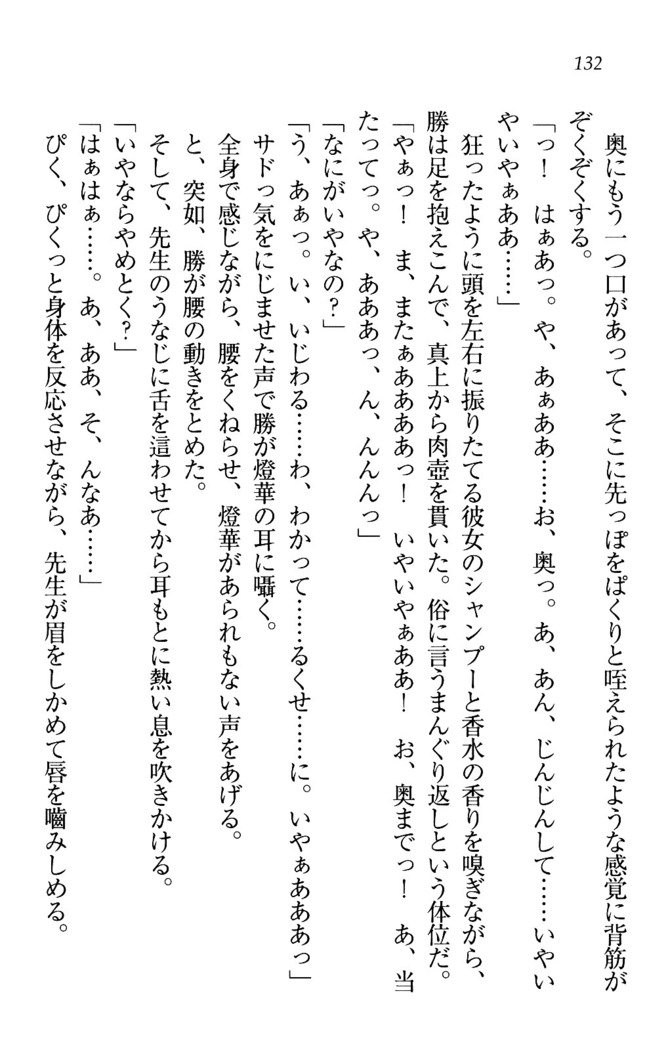 132
奥にもう一つ口があって、そこに先っぽをぱくりと咥えられたような感覚に背筋が
ぞくぞくする。
「っ！　はぁあっ。や、あぁああ……お、奥っ。あ、あん、じんじんして……いやい
やいやぁああ……」
狂ったように頭を左右に振りたてる彼女のシャンプーと香水の香りを嗅ぎながら、
勝は足を抱えこんで、真上から肉壺を貫いた。俗に言うまんぐり返しという体位だ。
「やぁっ！　ま、またぁああああっ！　いやいやぁああ！　お、奥までっ！　あ、当
たってっ。や、あああっ、ん、んんんっ」
「なにがいやなの？」
「う、あぁっ。い、いじわる……わ、わかって……るくせ……に。いやぁあああっ」
サドっ気をにじませた声で勝が燈華の耳に囁く。
全身で感じながら、腰をくねらせ、燈華があられもない声をあげる。
と、突如、勝が腰の動きをとめた。
そして、先生のうなじに舌を這わせてから耳もとに熱い息を吹きかける。
「いやならやめとく？」
「はぁはぁ……。あ、ああ、そ、んなあ……」
ぴく、ぴくっと身体を反応させながら、先生が眉をしかめて唇を嚙みしめる。